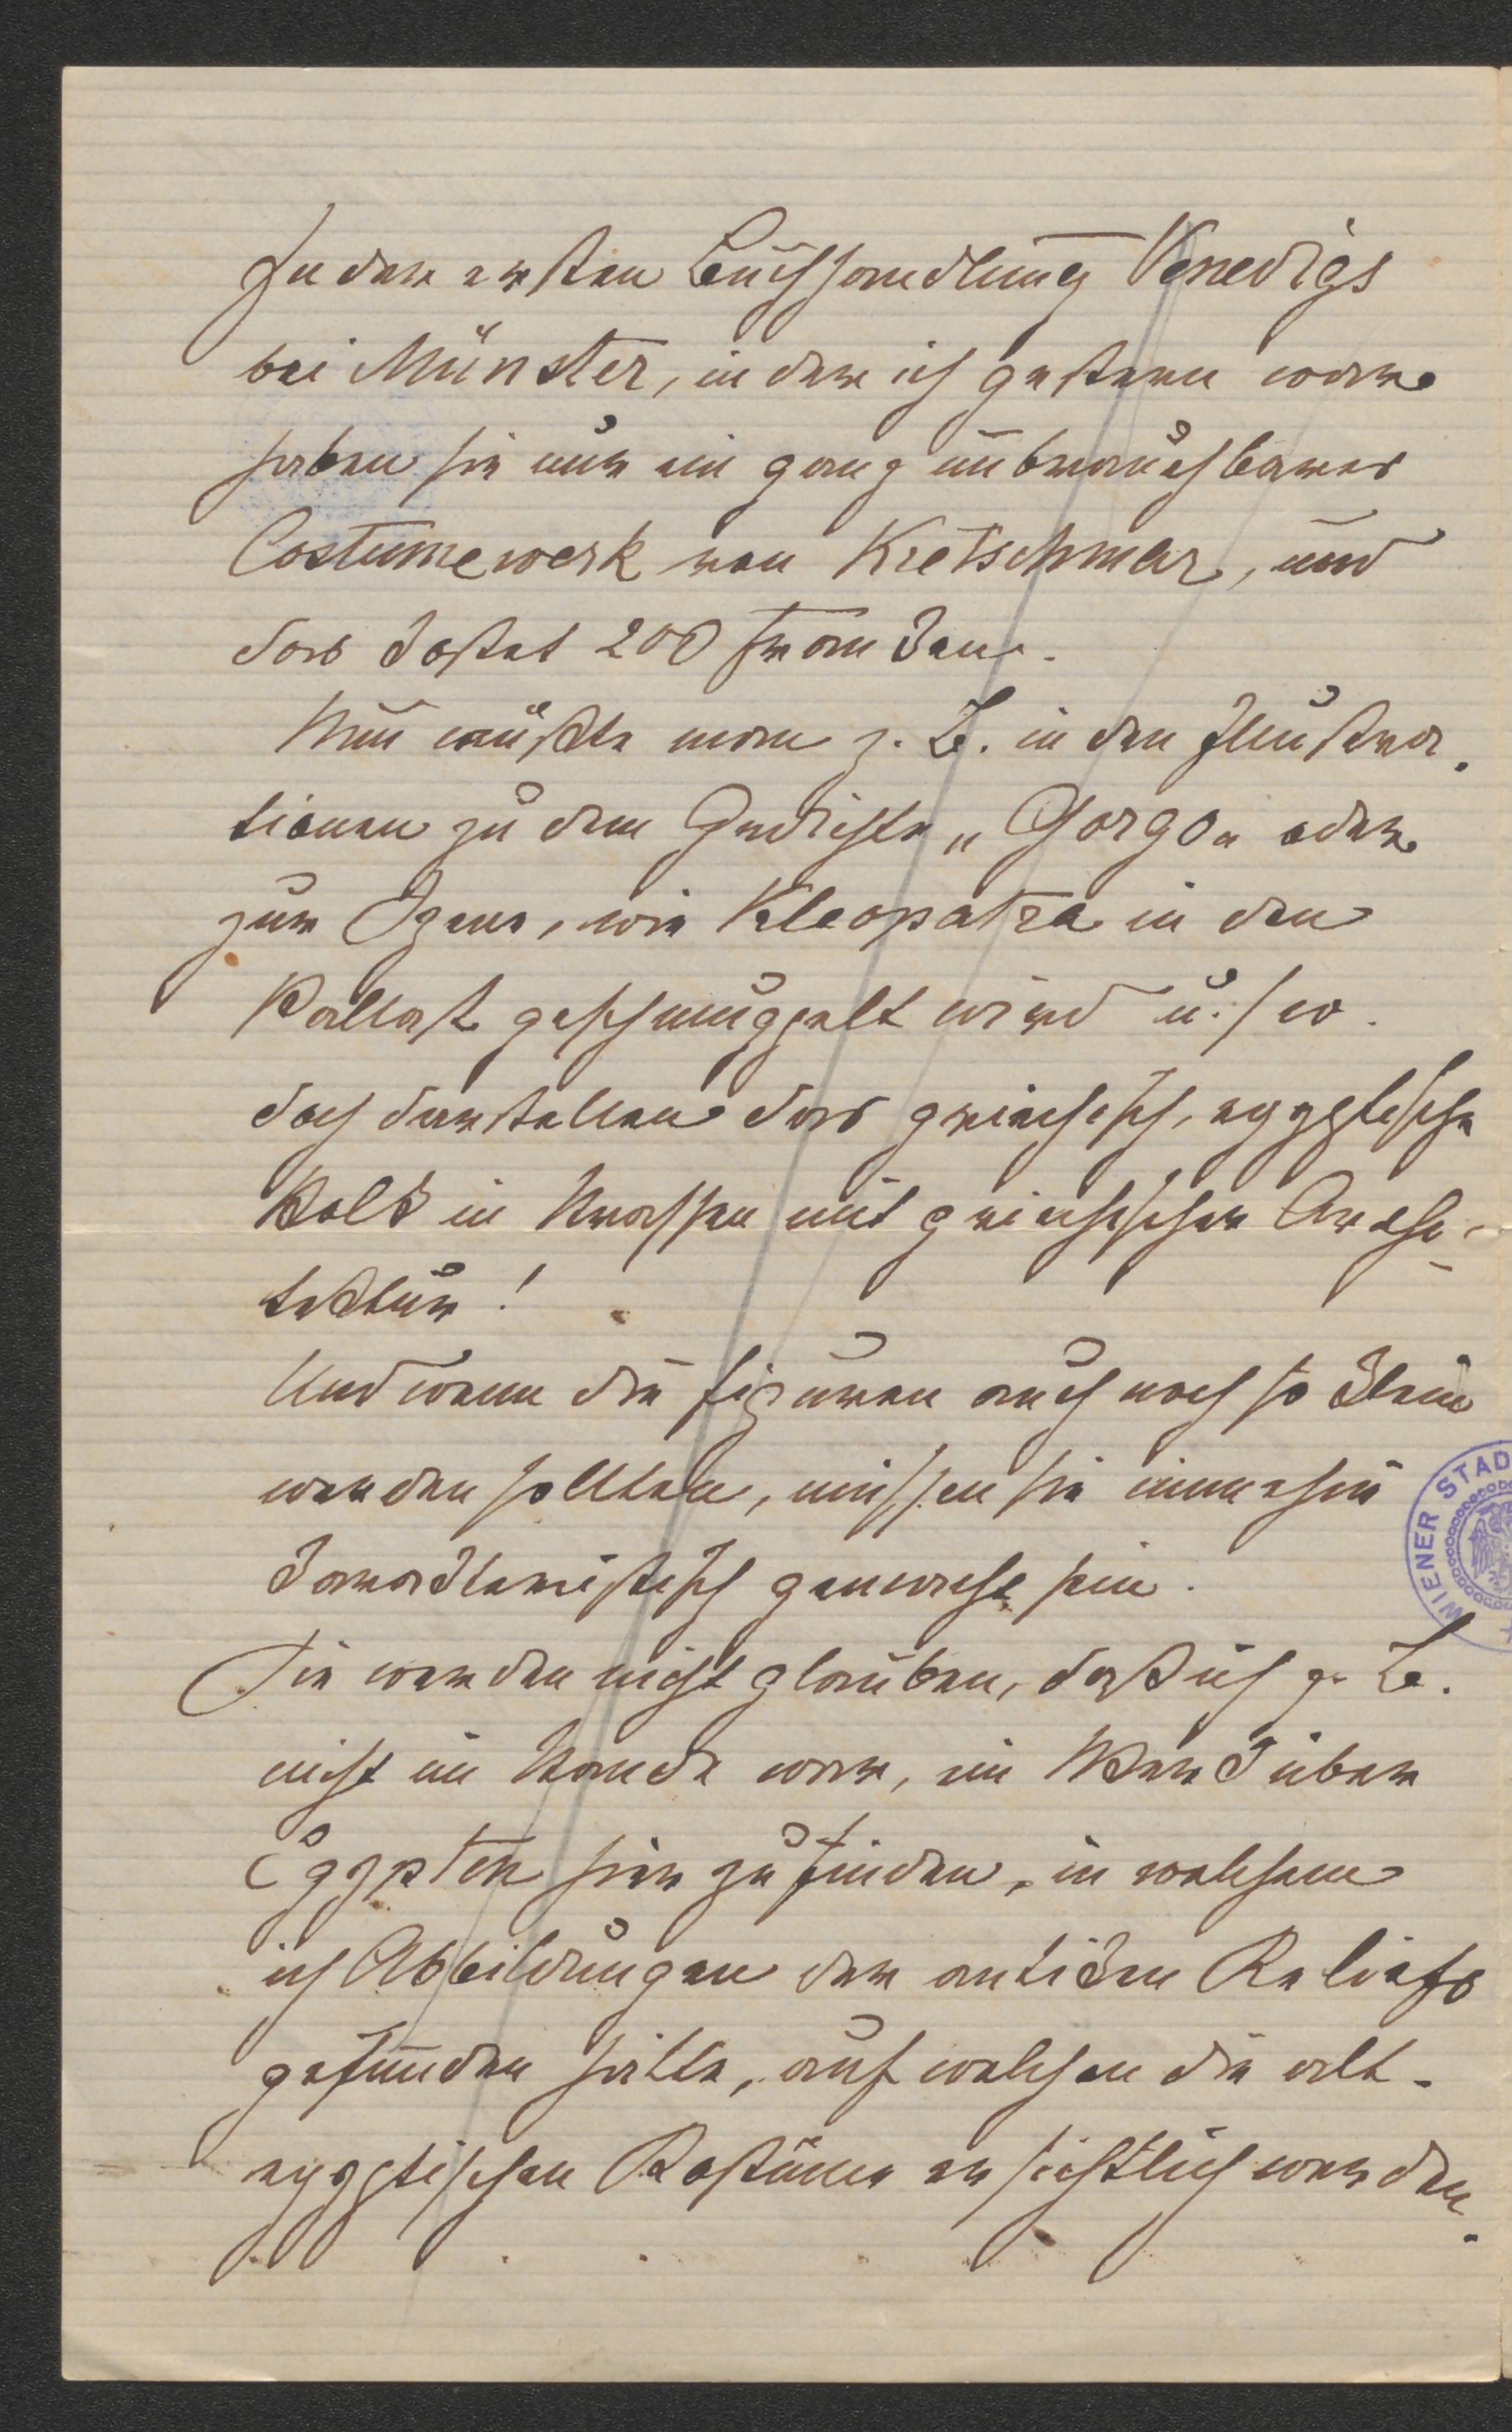 In der ersten Buchhandlung Venedigs
bei Münster, in der ich gestern war
haben sie nur ein ganz unbrauchbares
Costumewerk von Kretschmar, und
das kostet 200 Franken.
Nun müßte man z. B. in den Illustra-
tionen zu dem Gedichte „Gorgo" oder
zur Szene, wie Kleopatra in den
Pallast geschmuggelt wird u. s w.
doch darstellen das griechisch-egyptische
Volk in Strassen mit griechischer Archi-
tektur!
Und wenn die Figuren auch noch so klein
werden sollten, müssen sie immerhin
karakteristisch gemacht sein.
Sie werden nicht glauben, daß ich z. B.
nicht im Stande war, ein Werk über
Egypten hier zu finden, in welchem
ich Abbildungen der antiken Reliefs
gefunden hätte, auf welchen die alt-
egyptischen Kostüme ersichtlich werden.
WIENER STAD